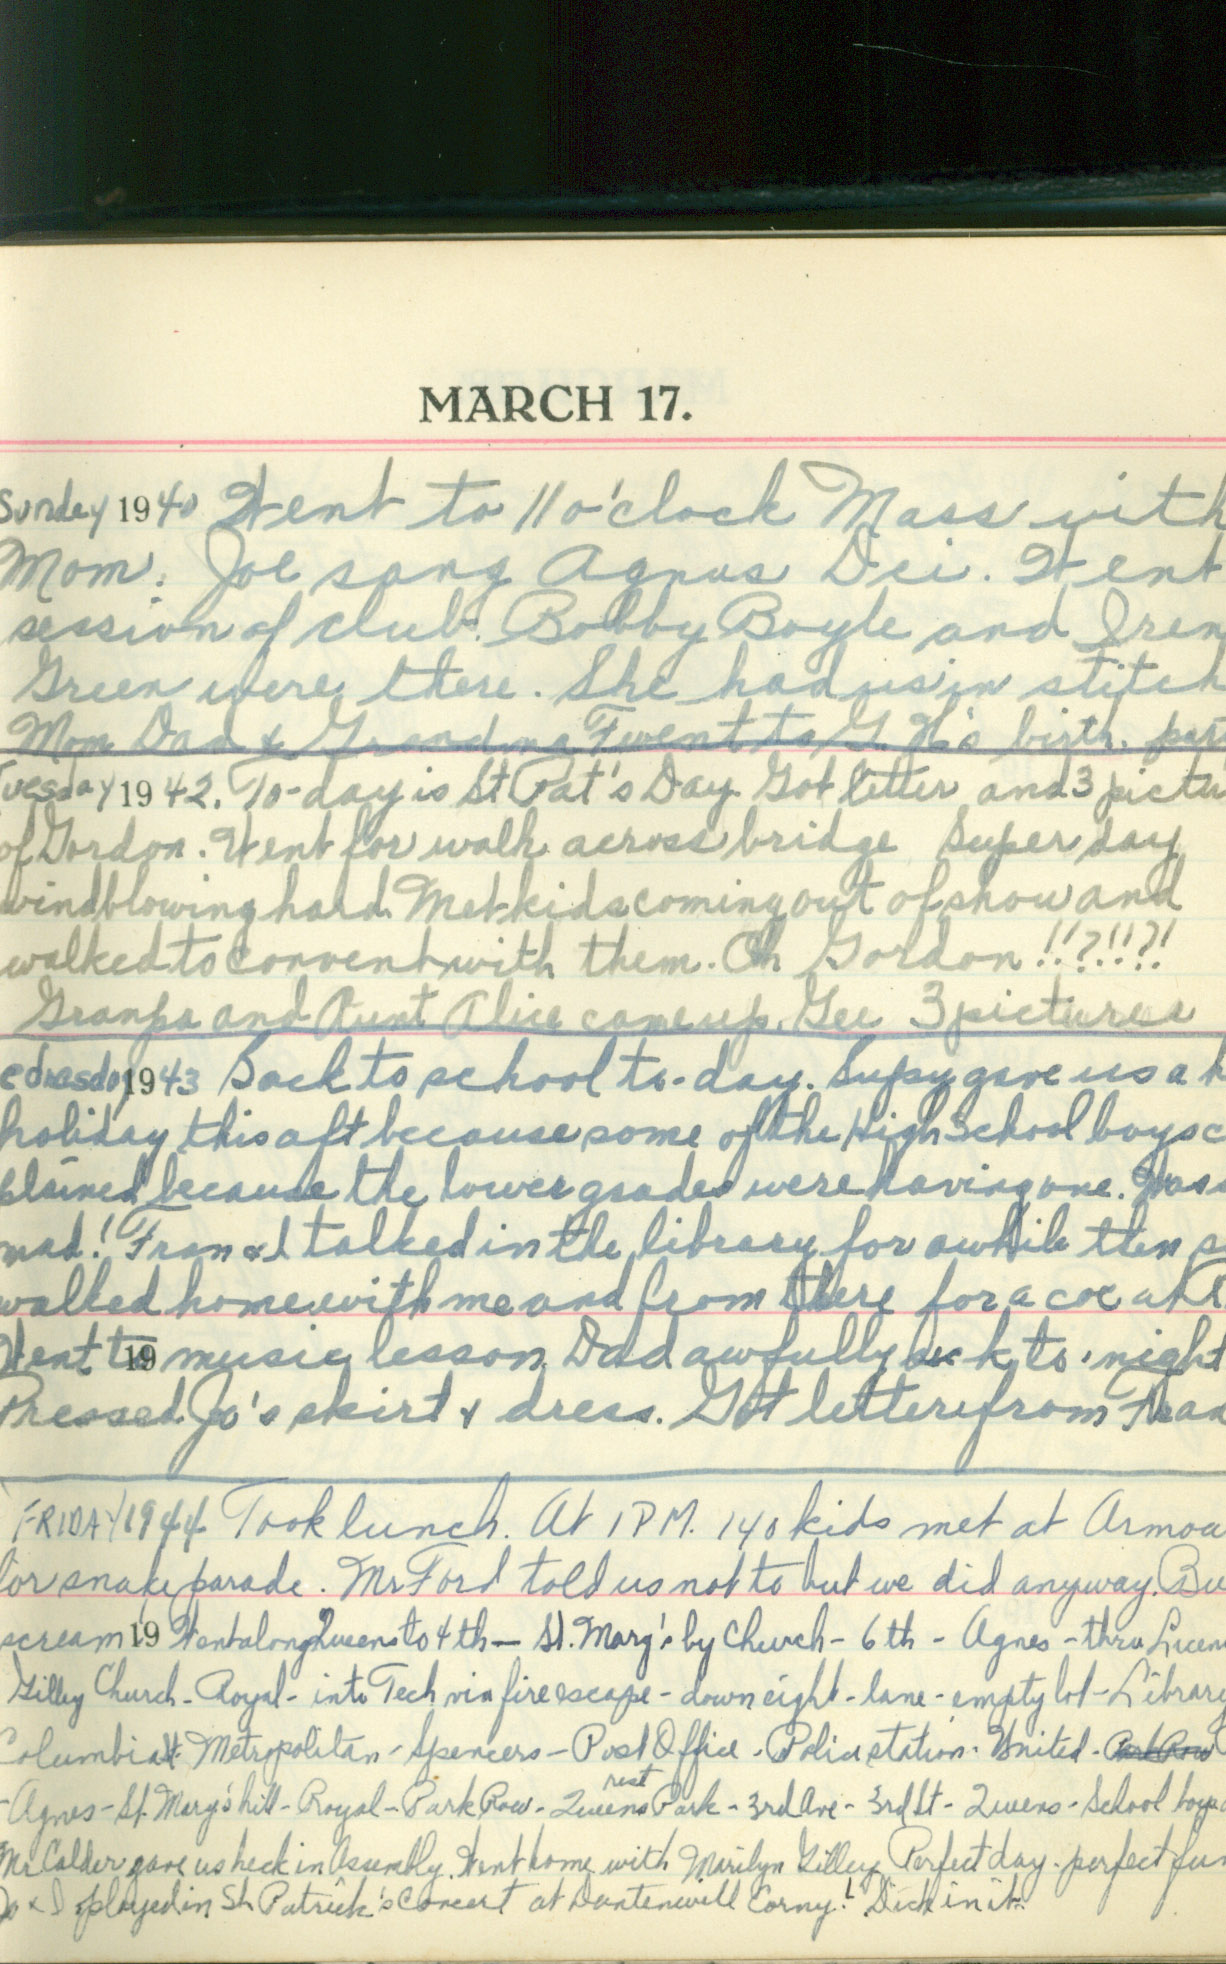 MARCH 17.
Sunday 1940 Went to 11 o'clock Mass with
Mom. Joe sang Agnus Dei. Went
session of club. Bobby Boyle and Iren
Green were there. She had us in stitch
Mom Dad & Grandma F went to G. H's birth. part
Tuesday 1942. To-day is St Pat's Day. Got letter and 3 pictu
of Gordon. Went for walk across bridge Super day
wind blowing hard. Met kids coming out of show and
walked to convent with them. Oh Gordon!!?!!?!
Granpa and Aunt Alice came up. Gee 3 pictures
ednesday 1943 Back to school to-day. Supsy gave us a h
holiday this aft because some of the High School boys c
plained because the lower grades were having one. Was
mad! Fran & I talked in the library for awhile then s
walked home with me and from there for a coc at
Went to 19 music lesson. Dad awfully sick to-night
Pressed Jo's skirt & dress. Got letter from Fran
FRIDAY 1944 Took lunch. At 1 P.M. 140 kids met at Armou
for snake parade. Mr Ford told us not to but we did anyway. Bu
scream 19 Went along Queens to 4th - St. Mary's by Church - 6th - Agnes - thru
Gilley Church - Royal - into Tech via fire escape - down eight - lane - empty lot - Library
Columbia St. Metropolitan - Spencers - Post Office - Police station - United -
- Agnes - St. Mary's hill - Royal - Park Row - Queens Park rest - 3rd Ave - 3rd St - Queens - School boys
Mr Calder gave us heck in Assembly. Went home with Marilyn Gilley. Perfect day - perfect fun
Jo & I played in St Patrick's Concert at Corny! Dick in it.